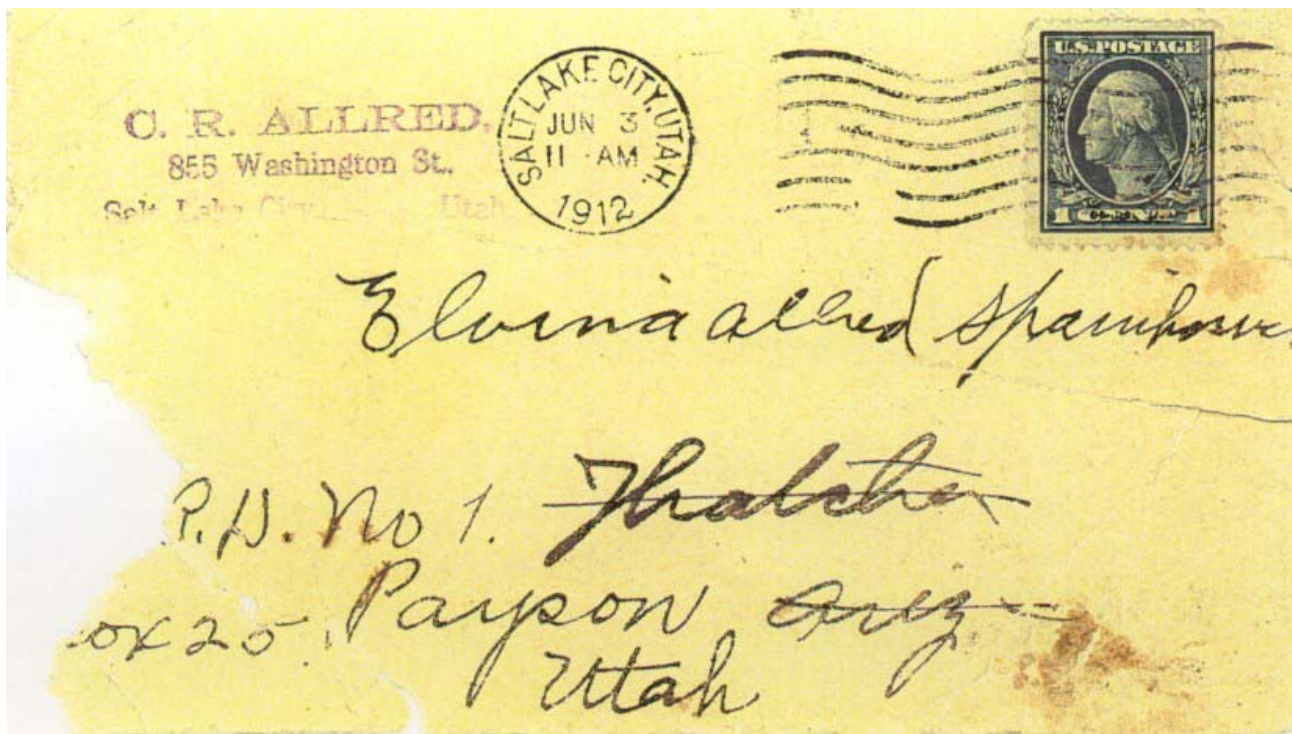 C. R. ALLRED.
855 Washington St.
Salt Lake City Utah
SALT LAKE CITY, UTAH.
JUN 3
11 AM
1912
U.S. POSTAGE
1 CENT 1
Elvina Allred
P.D. No 1. Thatcher
ox 25. Payson Ariz
Utah